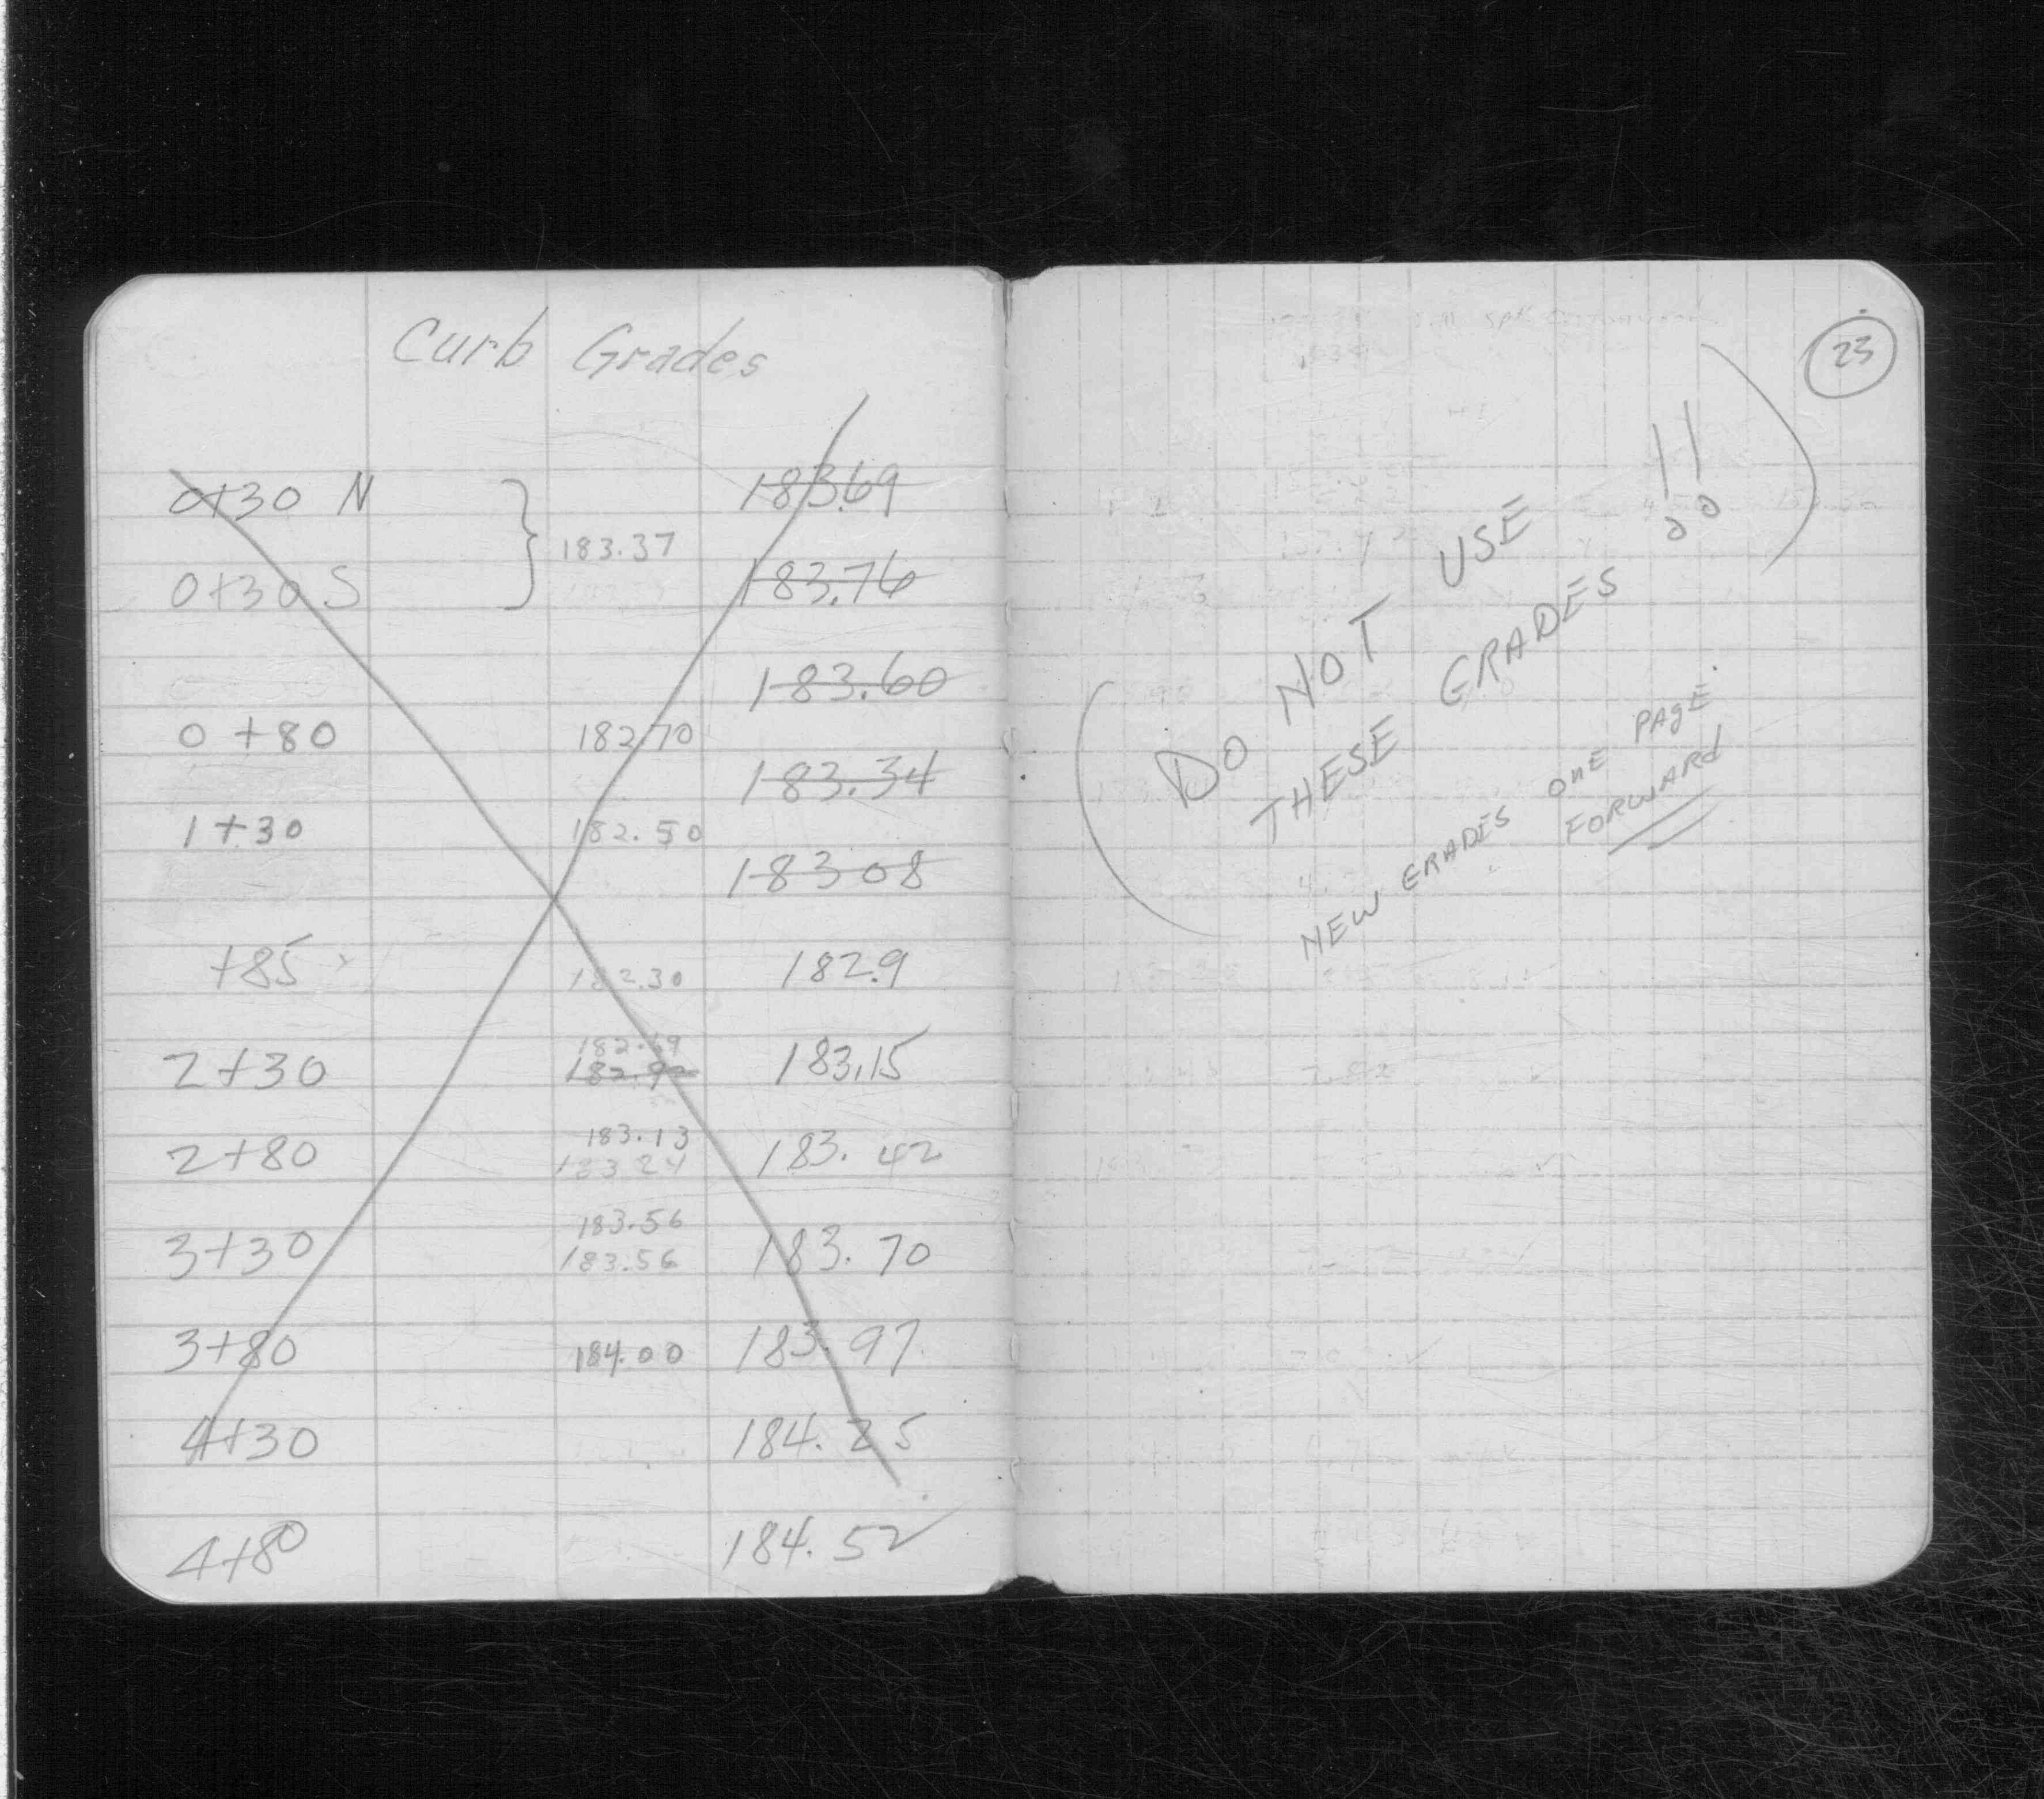 Curb Grades
0+30 N 183.69
183.37
0+30 S 183.76
183.60
0+80 182.70
183.34
1+30 182.50
18308
+85 182.30 182.9
182.69
2+30 182.92 183.15
183.13
2+80 183.24 183.42
183.56
3+30 183.56 183.70
3+80 184.00 183.97
4+30 184.25
4+80 184.52
23
DO NOT USE
THESE GRADES !!
NEW GRADES ONE PAGE
FORWARD